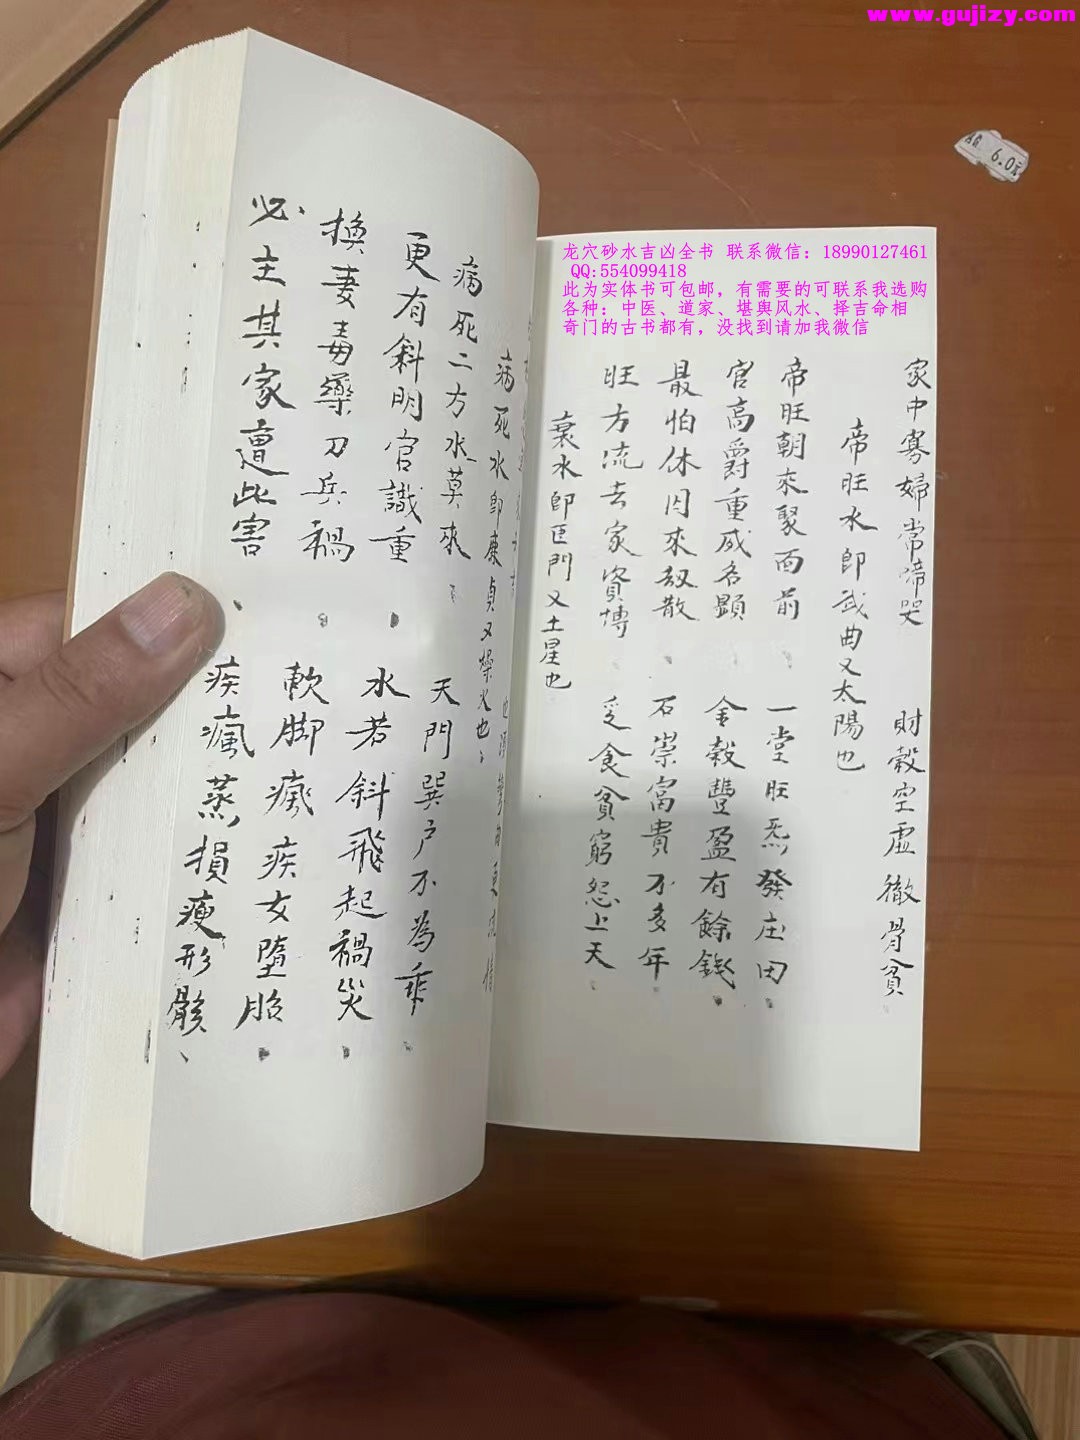 www.gujizy.com
6.0元
龙穴砂水吉凶全书 联系微信：18990127461
QQ:554099418
此为实体书可包邮，有需要的可联系我选购
各种：中医、道家、堪舆风水、择吉命相
奇门的古书都有，没找到请加我微信
家中寡婦常啼哭 財穀空虛徹骨貧
帝旺水即武曲又太陽也
帝旺朝來聚面前 一堂旺炁發庄田
官高爵重威名顯 金穀豐盈有餘錢
最怕休囚來刼散 石崇富貴不多年
旺方流去家資愽 乏食貧窮怨上天
衰水即巨門又土星也
病死水即廉貞又燥火也
病死二方水莫來 天門巽户不為乖
更有斜明官識重 水若斜飛起禍災
換妻毒藥刀兵禍 軟脚瘋疾女墮胎
必主其家遭此害 疾瘋蒸損瘦形骸